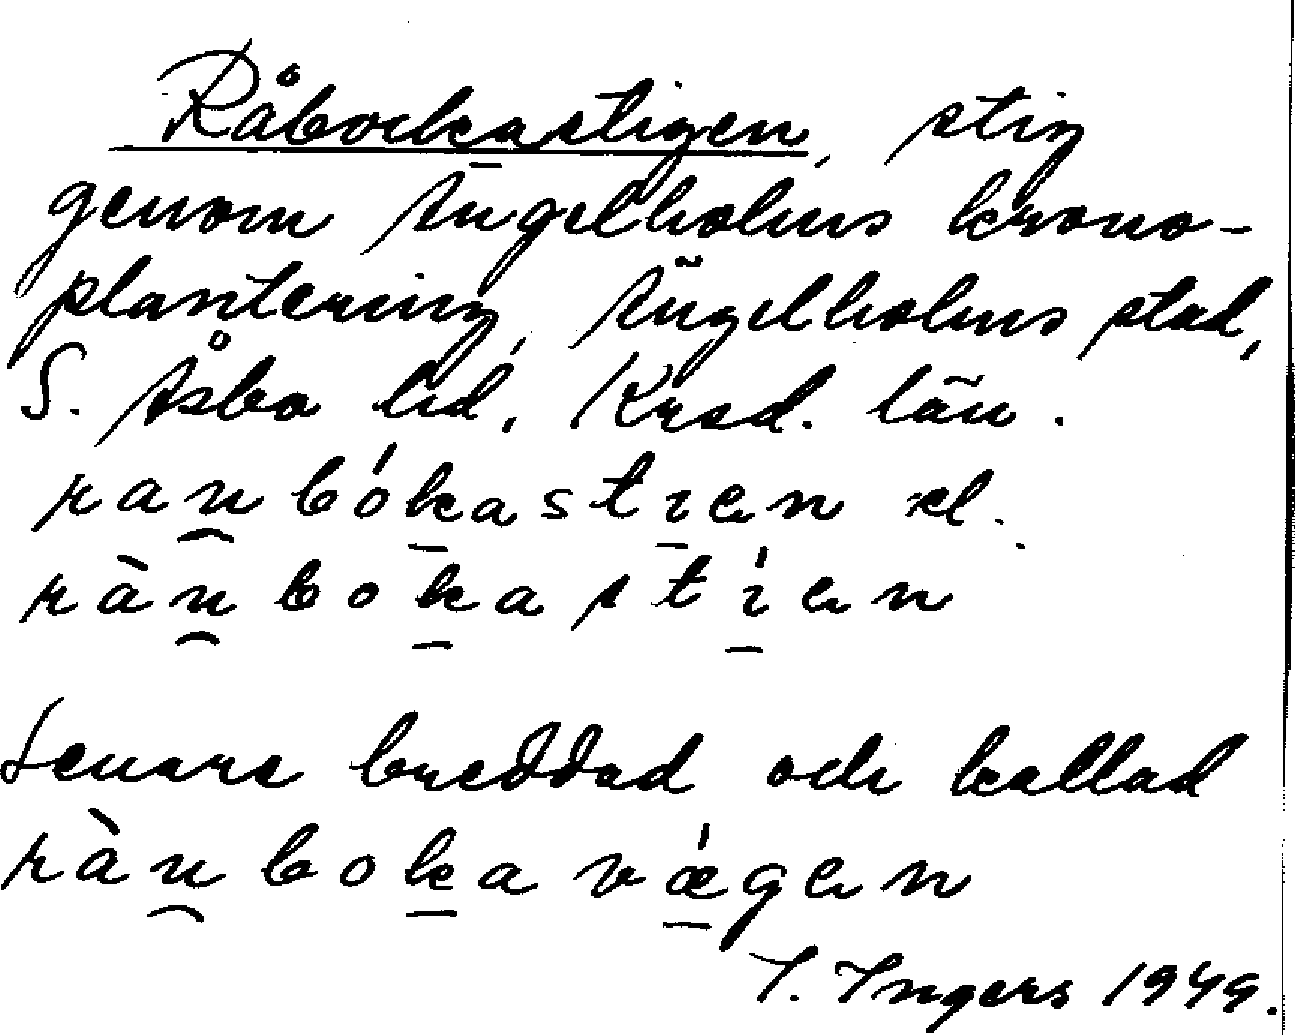 Råbockastigen, stig
genom Ängelholms krono-
plantering, Ängelholms stad,
S. Åsbo hd, Krsd. län.
rau̯bókastıen el.
ràu̯bokastı́en
Senare breddad och kallad
ràu̯bokavǽgen
I. Ingers 1949.